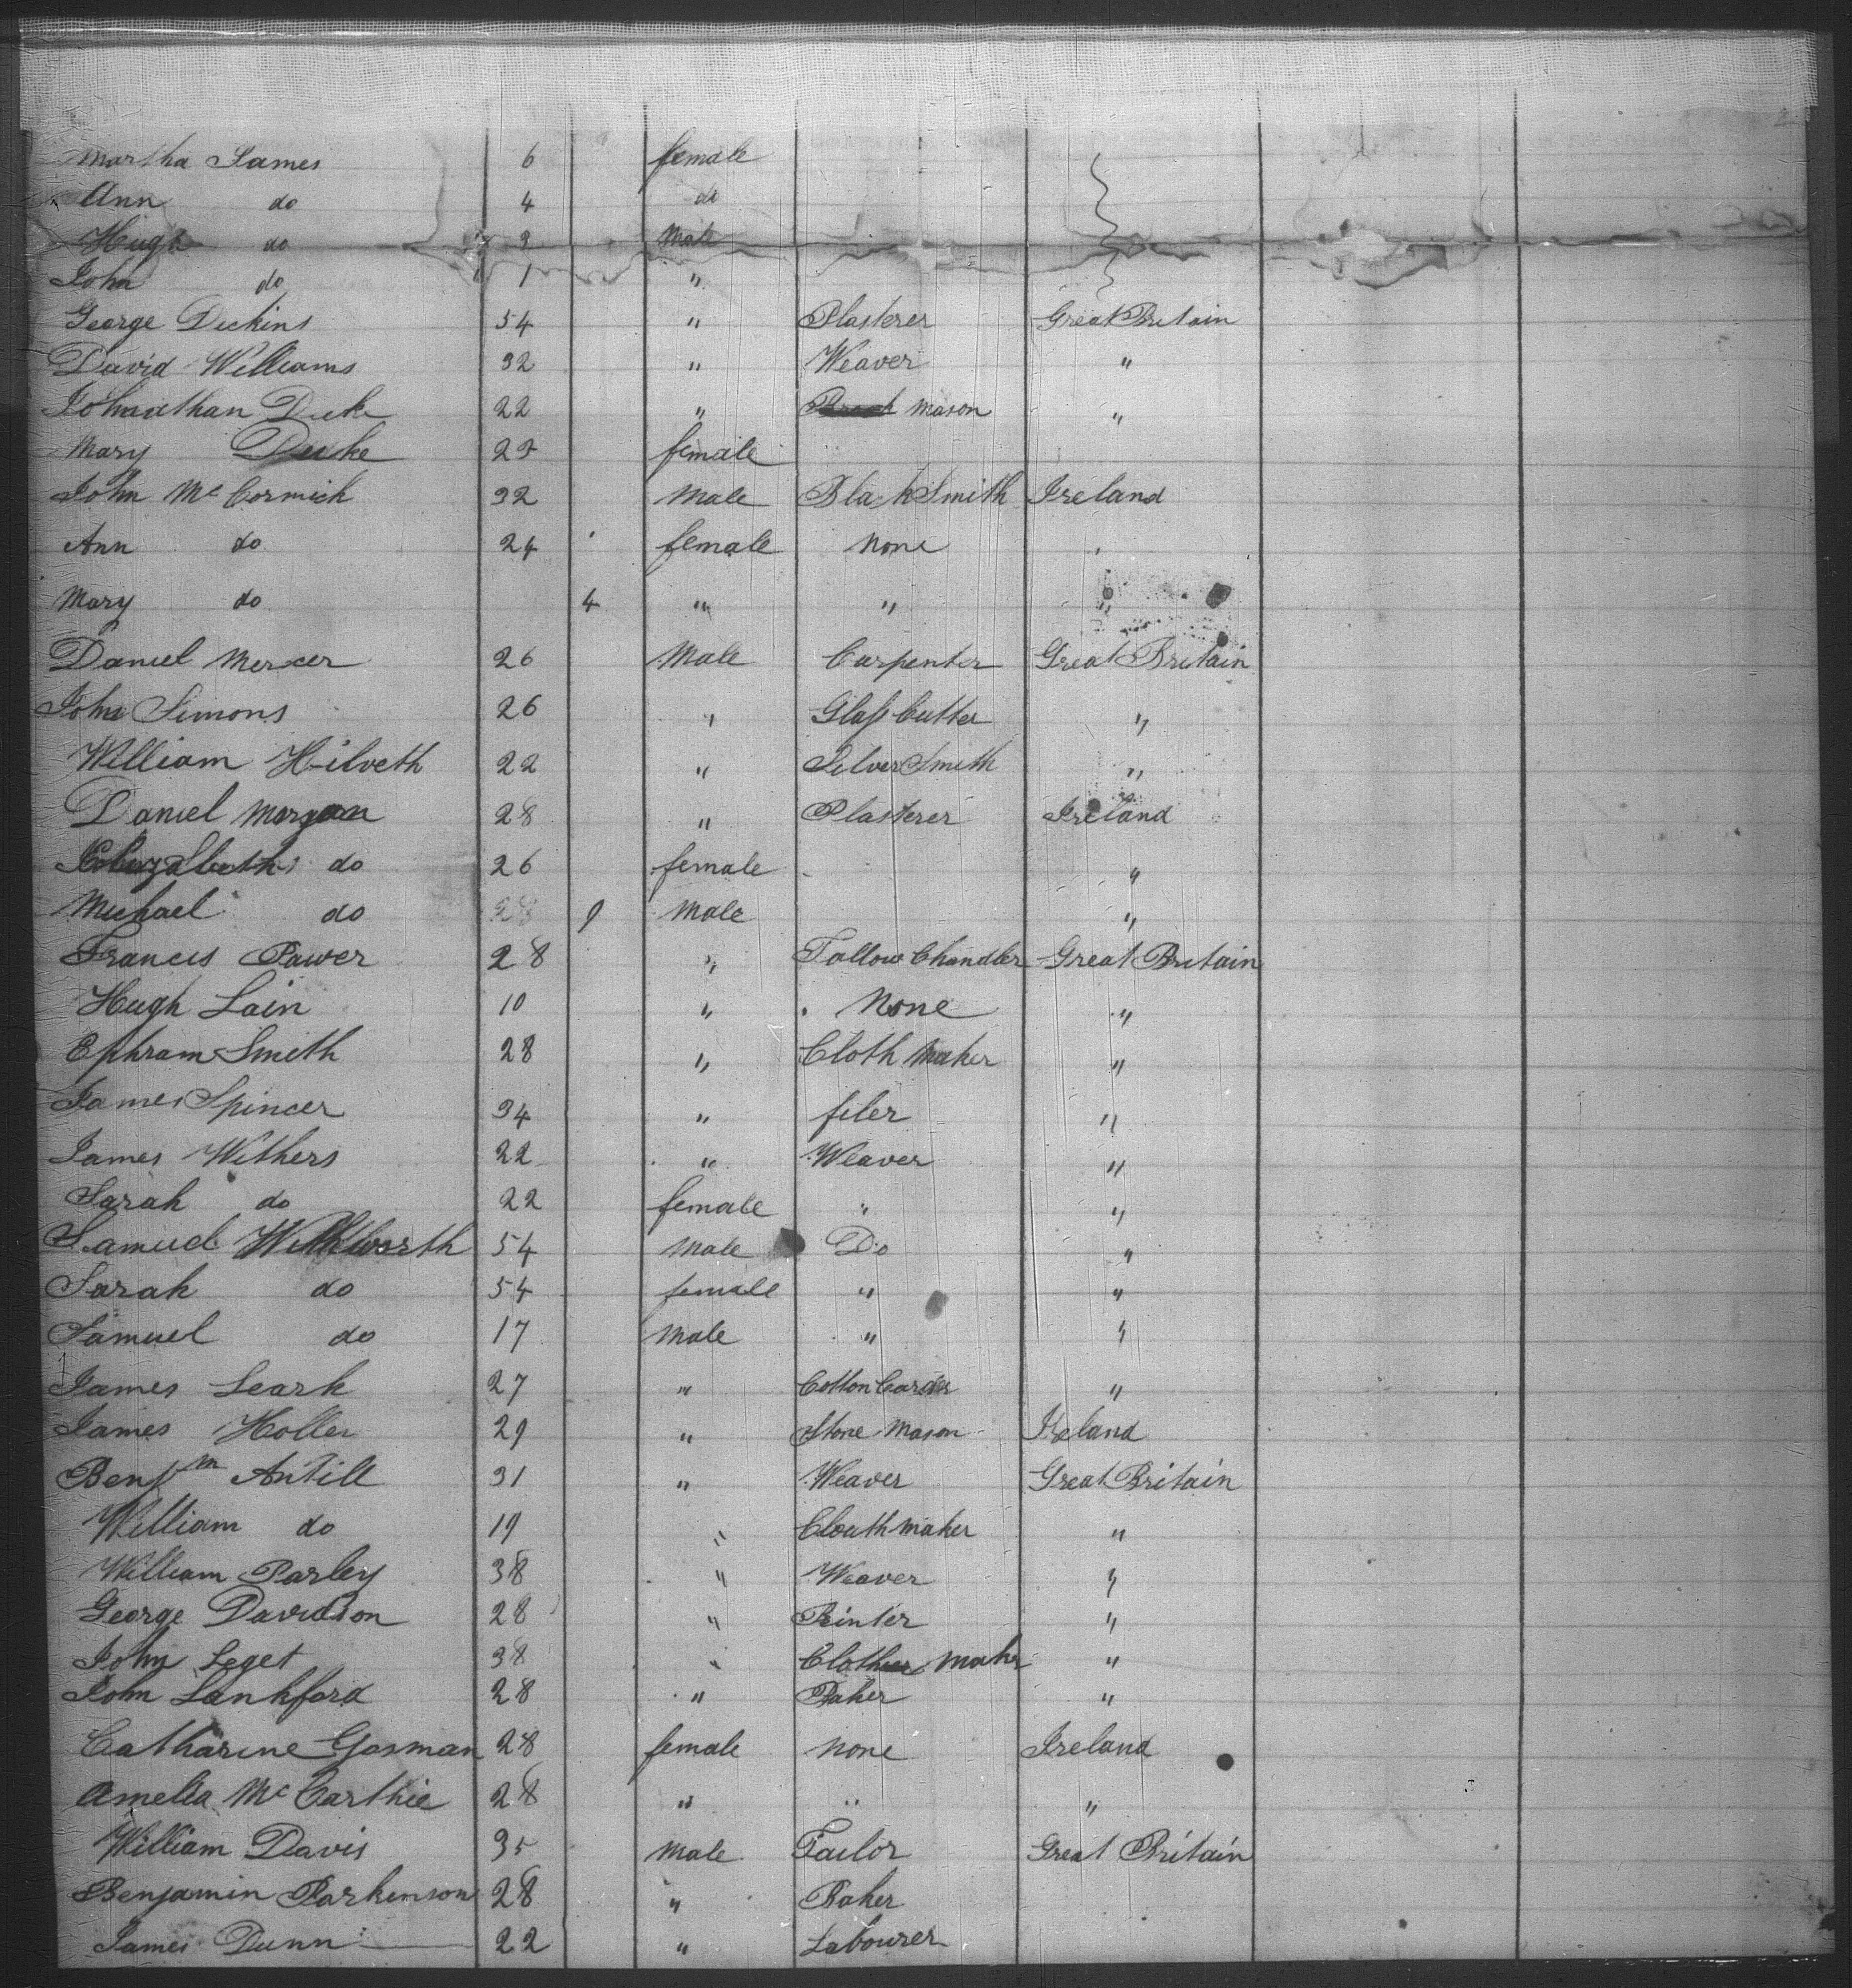 Martha James 6 female
Ann do 4 do
Hugh do 3 Male
John do 1 "
George Dickins 54 " Plasterer Great Britain
David Williams 32 " Weaver "
Johnathan Duke 22 " Mason "
Mary Duke 25 female
John McCormick 32 Male Black Smith Ireland
Ann do 24 female None "
Mary do 4 " " "
Daniel Mercer 26 Male Carpenter Great Britain
John Simons 26 " Glass Cutter "
William Hilveth 22 " Silver Smith "
Daniel Morgan 28 " Plasterer Ireland
Elizabeth do 26 female "
Michael do 9 Male "
Francis Power 28 " Tallow Chandler Great Britain
Hugh Lain 10 " None "
Ephram Smith 28 " Cloth Maker "
James Spincer 34 " filer "
James Withers 22 " Weaver "
Sarah do 22 female " "
Samuel 54 Male Do "
Sarah do 54 female " "
Samuel do 17 Male " "
James Leark 27 " Cotton Carder "
James Holler 29 " Stone Mason Ireland
Benjm Antill 31 " Weaver Great Britain
William do 19 " Clouth Maker "
William Parley 38 " Weaver "
George Davidson 28 " Printer "
John Leget 38 " Cloth Maker "
John Lankford 28 " Baker "
Catharine Gosman 28 female None Ireland
Amelia McCarthie 28 " " "
William Davis 35 Male Tailor Great Britain
Benjamin Parkinson 28 " Baker
James Dunn 22 " Labourer